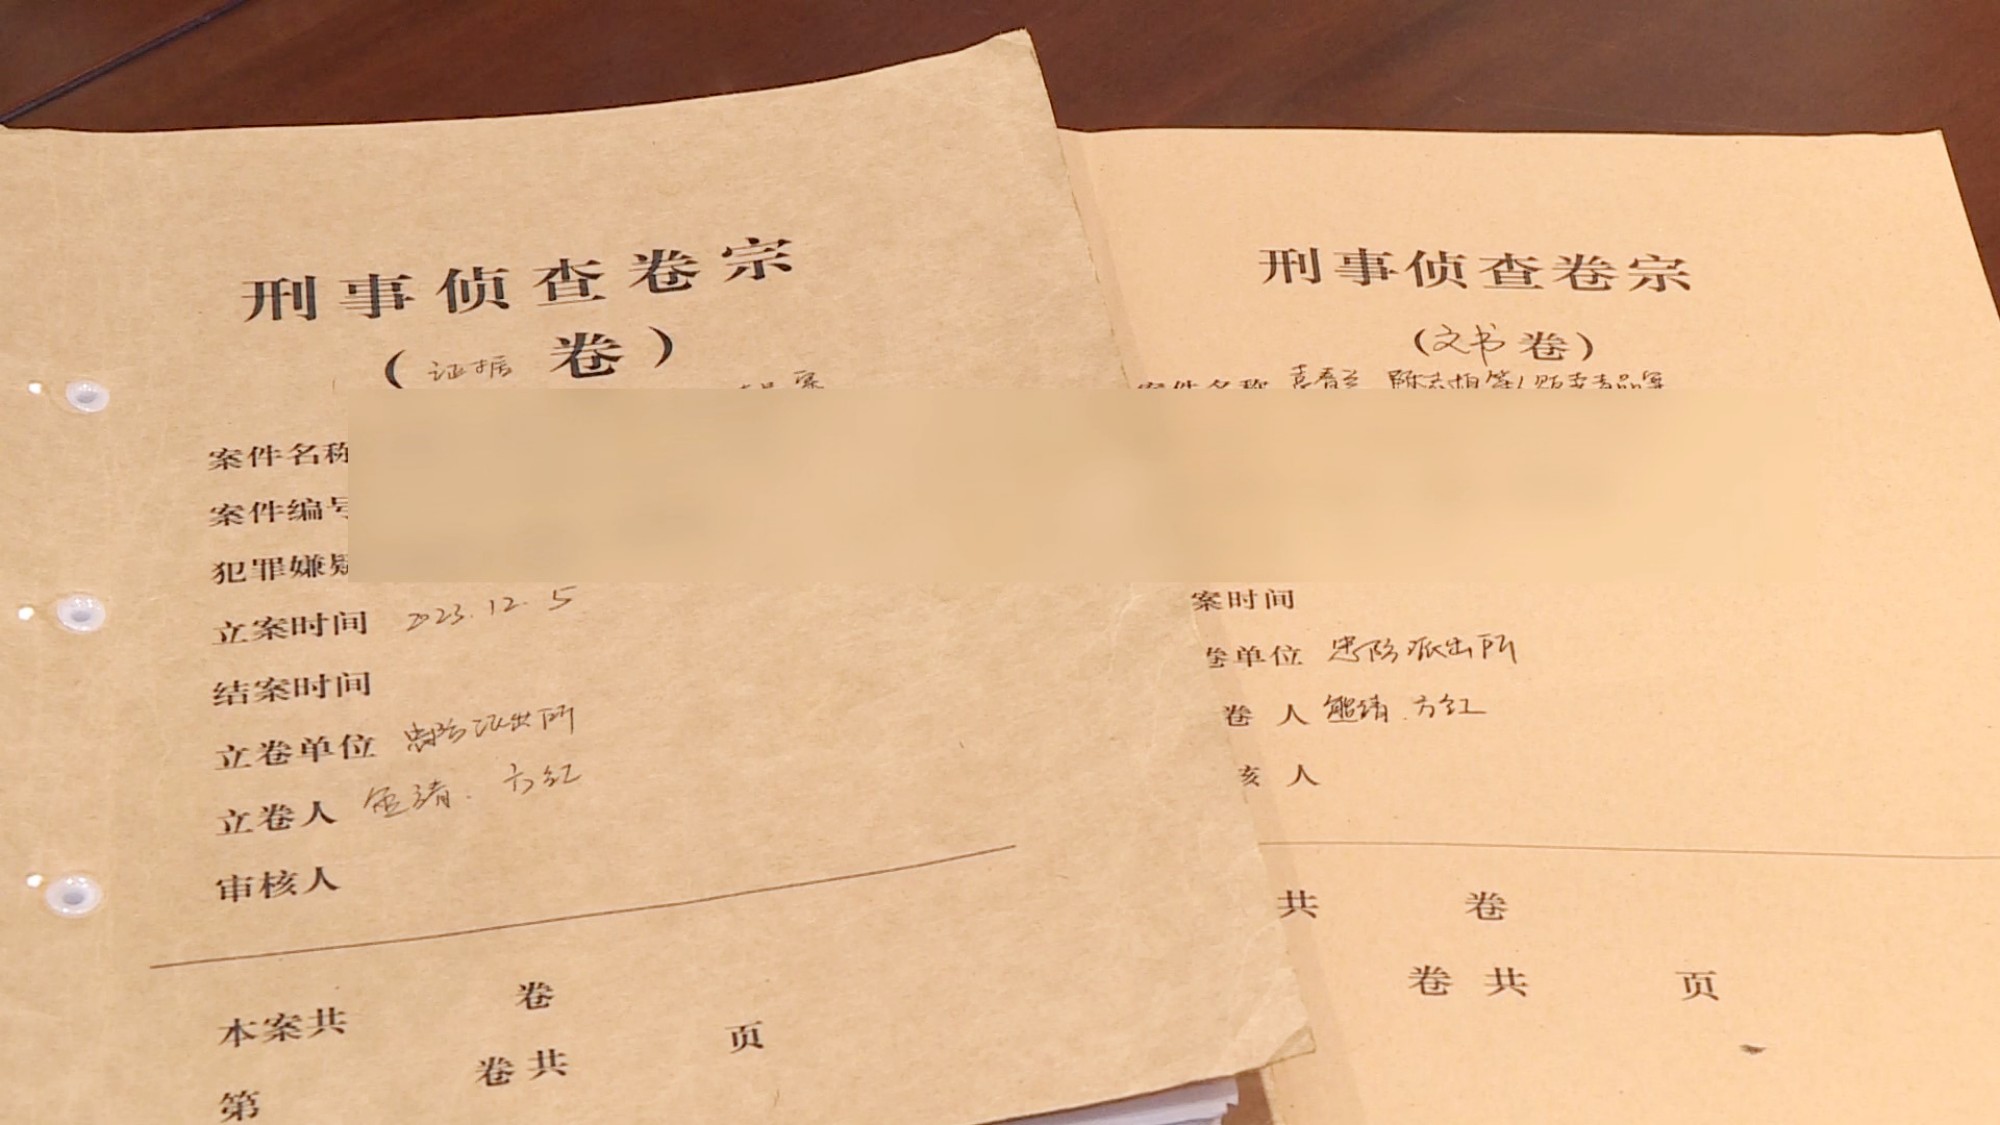 刑事侦查卷宗
（证据 卷）
案件名称
案件编号
犯罪嫌疑
立案时间 2023.12.5
结案时间
立卷单位 忠防派出所
立卷人 熊靖.方红
审核人
本案共 卷
第 卷共 页
刑事侦查卷宗
（文书 卷）
案件名称 等人贩卖毒品案
案时间
卷单位 忠防派出所
卷 人 熊靖.方红
核 人
共 卷
卷 共 页